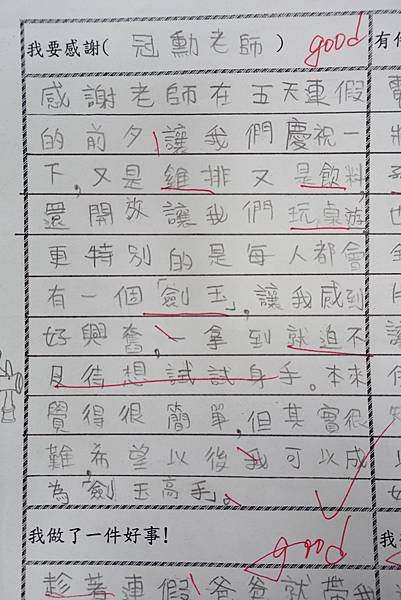 我要感謝(冠勳老師) good
感謝老師在五天連假
的前夕,讓我們慶祝一
下,又是雞排又是飲料,
還開放讓我們玩桌遊,
更特別的是每人都會
有一個「劍玉」,讓我感到
好興奮,一拿到就迫不
及待想試試身手。本來
覺得很簡單,但其實很
難,希望以後我可以成
為「劍玉高手」。
我做了一件好事! good
趁著連假,爸爸就帶我